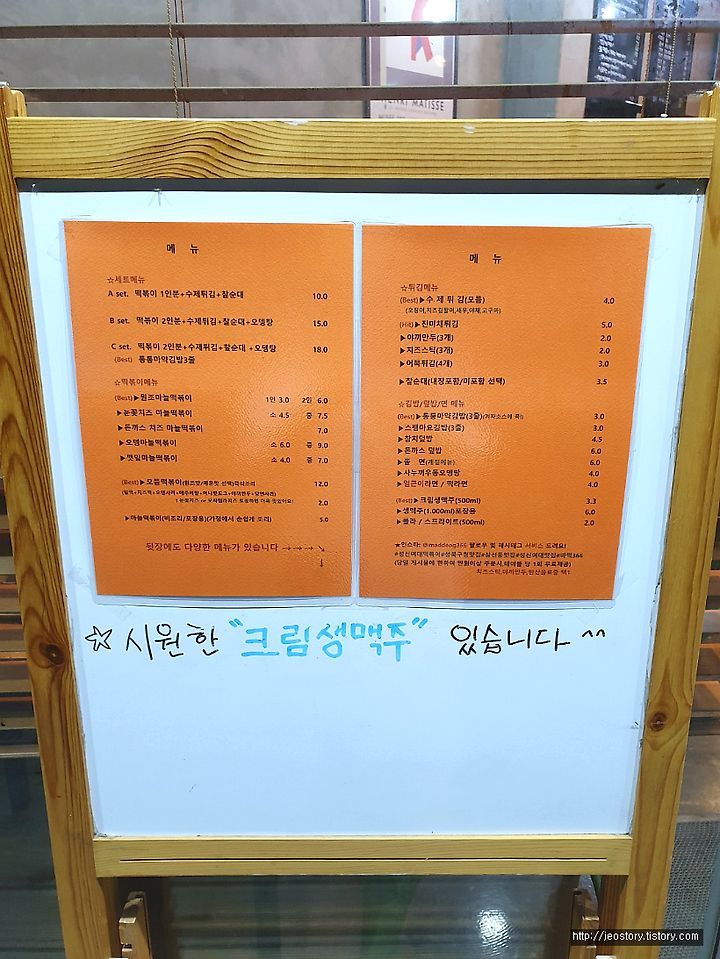 HENRI MATISSE
메 뉴
☆세트메뉴
A set. 떡볶이 1인분+수제튀김+찰순대 10.0
B set. 떡볶이 2인분+수제튀김+찰순대+오뎅탕 15.0
C set. 떡볶이 2인분+수제튀김+찰순대 +오뎅탕 18.0
(Best) 통통마약김밥3줄
☆떡볶이메뉴
(Best)▶원조마늘떡볶이 1인 3.0 2인 6.0
▶눈꽃치즈 마늘떡볶이 소 4.5 중 7.5
▶돈까스 치즈 마늘떡볶이 7.0
▶오뎅마늘떡볶이 소 6.0 중 9.0
▶깻잎마늘떡볶이 소 4.0 중 7.0
(Best)▶모듬떡볶이 12.0
2.0
▶마늘떡볶이(비조리/포장용)(가정에서 손쉽게 조리) 5.0
뒷장에도 다양한 메뉴가 있습니다 →→→→↘
↓
메 뉴
☆튀김메뉴
(Best)▶수 제 튀 김(모듬) 4.0
(오징어,치즈김말이,새우,야채,고구마)
(Hit)▶진미채튀김 5.0
▶야끼만두(3개) 2.0
▶치즈스틱(3개) 2.0
▶어묵튀김(4개) 3.0
▶찰순대(내장포함/미포함 선택) 3.5
☆김밥/덮밥/면 메뉴
(Best)▶통통마약김밥(3줄)(겨자소스에 콕!) 3.0
▶스팸마요김밥(3줄) 3.0
▶참치덮밥 4.5
▶돈까스 덮밥 6.0
▶쫄 면(계절메뉴) 6.0
▶사누끼우동오뎅탕 4.0
▶얼큰이라면 / 떡라면 4.0
(Best)▶크림생맥주(500ml) 3.3
▶생맥주(1.000ml)포장용 6.0
▶콜라 / 스프라이트(500ml) 2.0
★인스타: @maddeog366 팔로우 및 해시태그 서비스 드려요!
#성신여대떡볶이#성북구청맛집#삼선동맛집#성신여대맛집#마떡366
(당일 게시물에 한하여 만원이상 주문시,테이블 당 1회 무료제공)
치즈스틱,야끼만두,탄산음료중 택1
☆ 시원한 "크림생맥주" 있습니다 ^^
http://jeostory.tistory.com